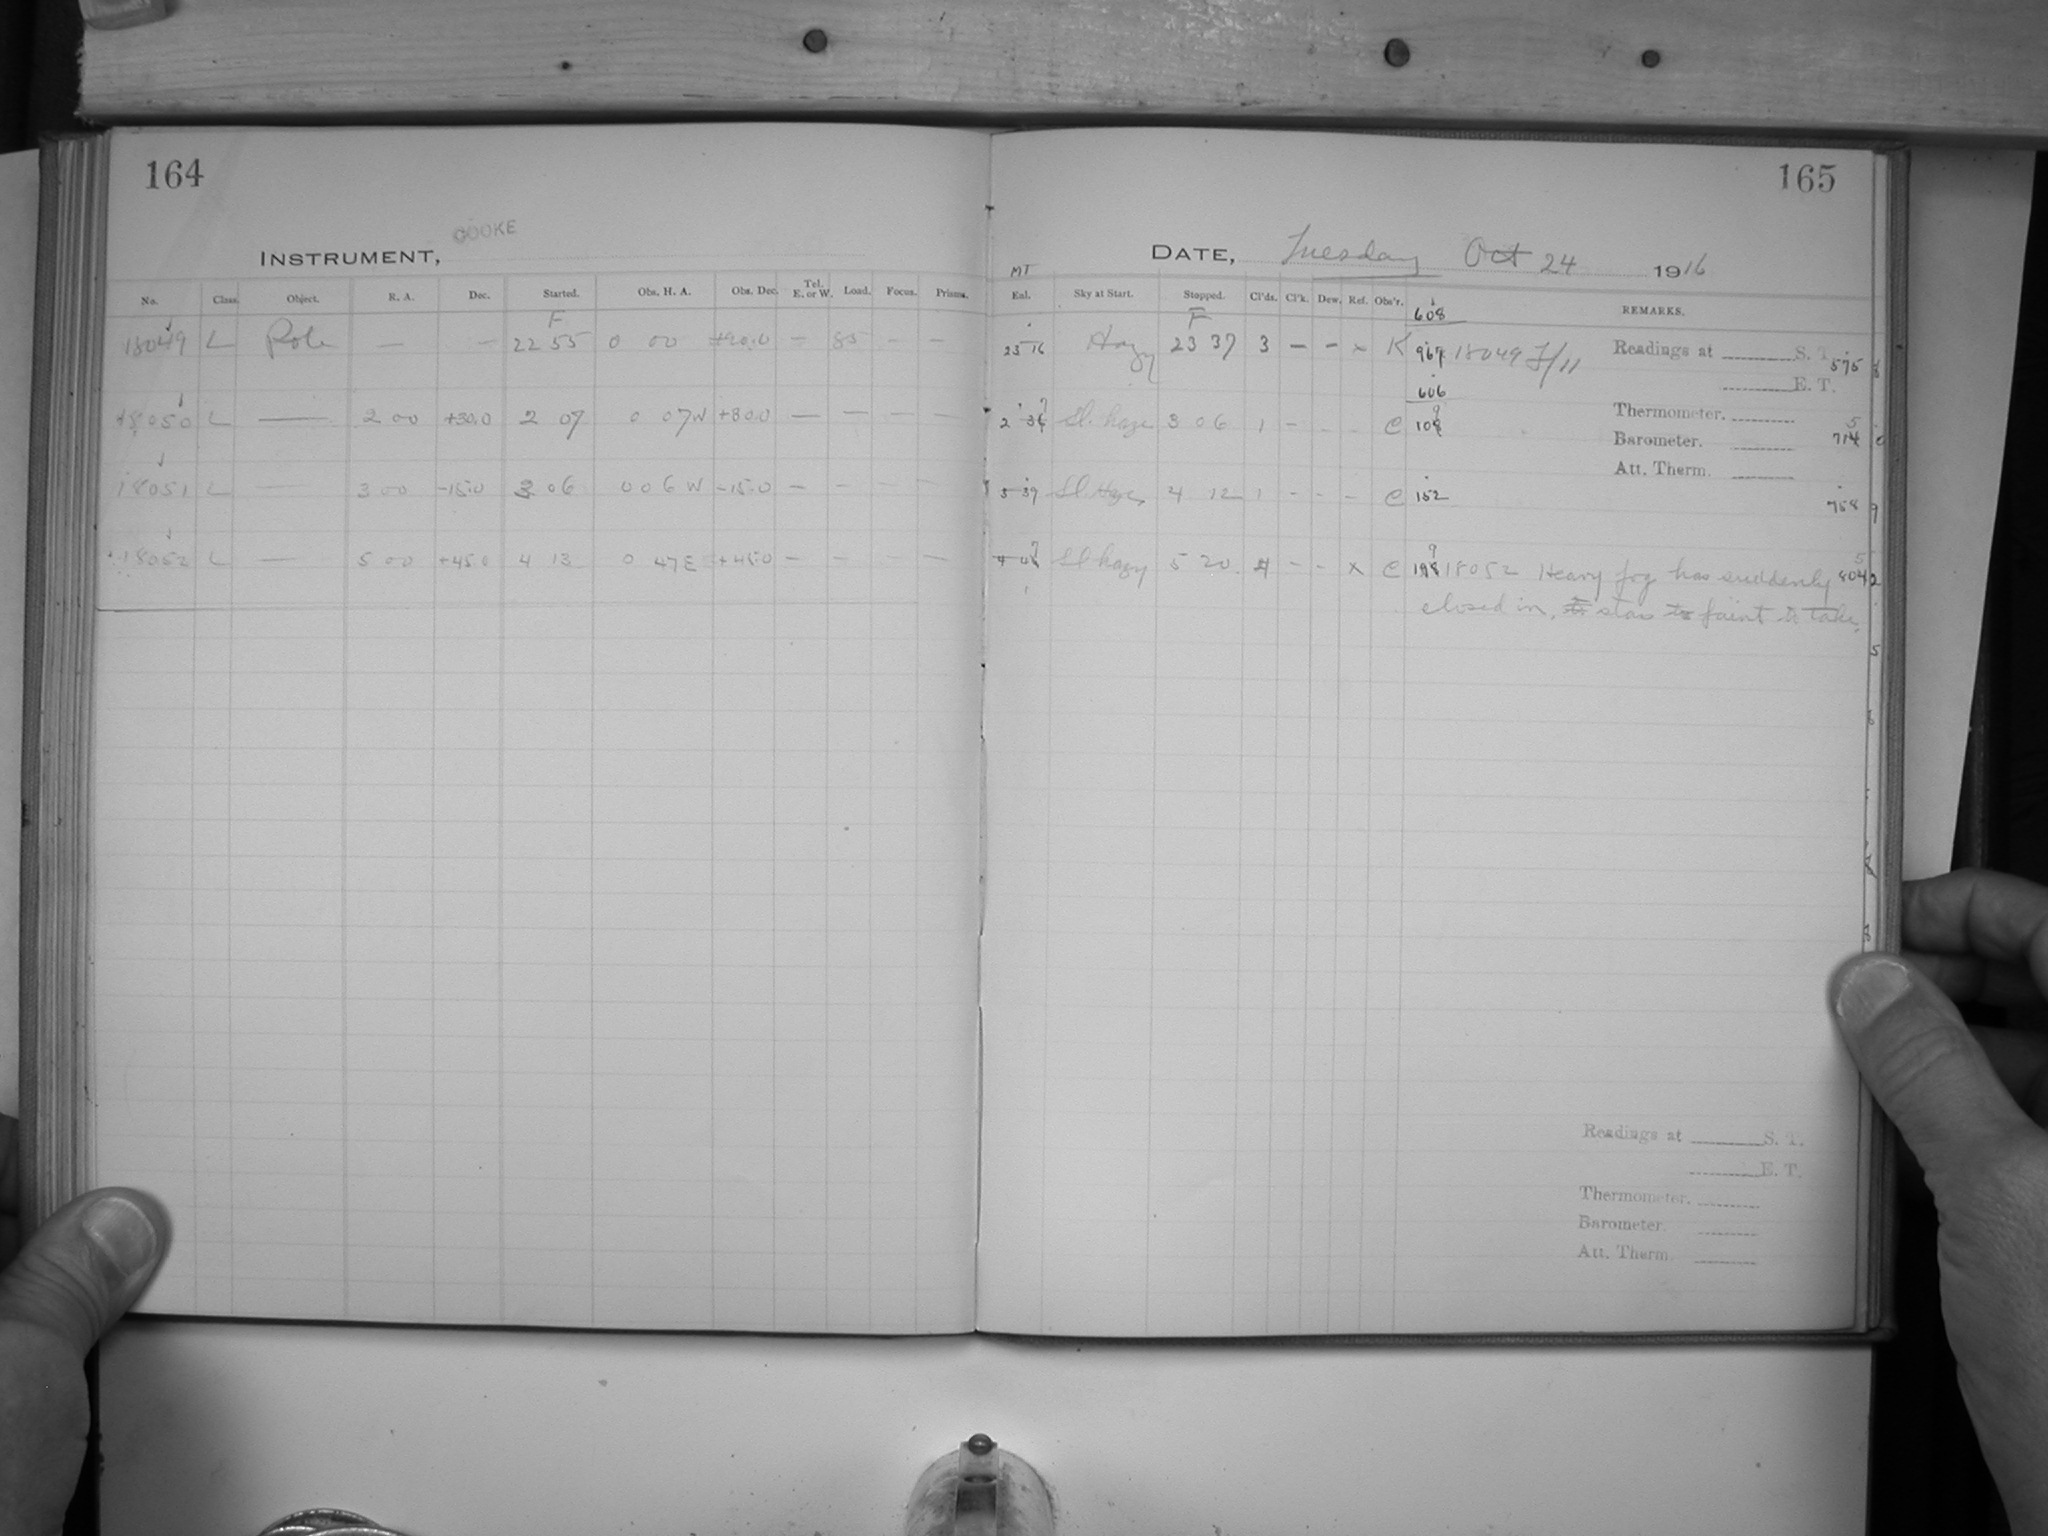 164
COOKE
INSTRUMENT,
No. Class. Object. R. A. Dec. Started. Obs. H. A. Obs. Dec. Tel. E. or W. Load. Focus. Prisms.
F
18049 L Pole — — 22 55 0 00 +90.0 — 85 — —
18050 L — 2 00 +30.0 2 07 0 07W +30.0 — — — —
18051 L — 3 00 -15.0 3 06 0 06W -15.0 — — — —
18052 L — 5 00 +45.0 4 13 0 47E +45.0 — — — —
165
DATE, Tuesday Oct 24 1916
MT
Enl. Sky at Start. Stopped. Cl'ds. Cl'k. Dew. Ref. Obs'r. REMARKS.
608
F
23 16 Hazy 23 37 3 – – x K 967 18049 F/11
Readings at S. T. 575
606
E. T.
2 Sl. haze 3 06 1 – C
Thermometer.
Barometer.
Att. Therm.
Sl. Haze 4 12 1 – – – C 152
758
Sl hazy 5 20 4 – – x C 18052 Heavy fog has suddenly
closed in, stars faint to take.
Readings at S. T.
E. T.
Thermometer.
Barometer.
Att. Therm.